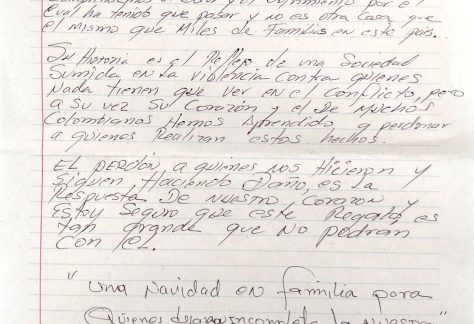 comprendemos el dolor y el sufrimiento por el
cual ha tenido que pasar y no es otra cosa que
el mismo que Miles de Familias en este pais.
Su Historia es el Reflejo de una Sociedad
Sumida en la violencia contra quienes
Nada tienen que ver en el conflicto, pero
a su vez Su corazón y el De Muchos
Colombianos Hemos Aprendido a perdonar
a quienes Realizan estos hechos.
EL PERDÓN a quienes nos Hicieron y
Siguen Haciendo Daño, es la
Respuesta De Nuestro Corazon y
Estoy Seguro que este Regalo es
tan grande que No podran
Con él.
"una Navidad en familia para
Quienes incompleta la Nuestra